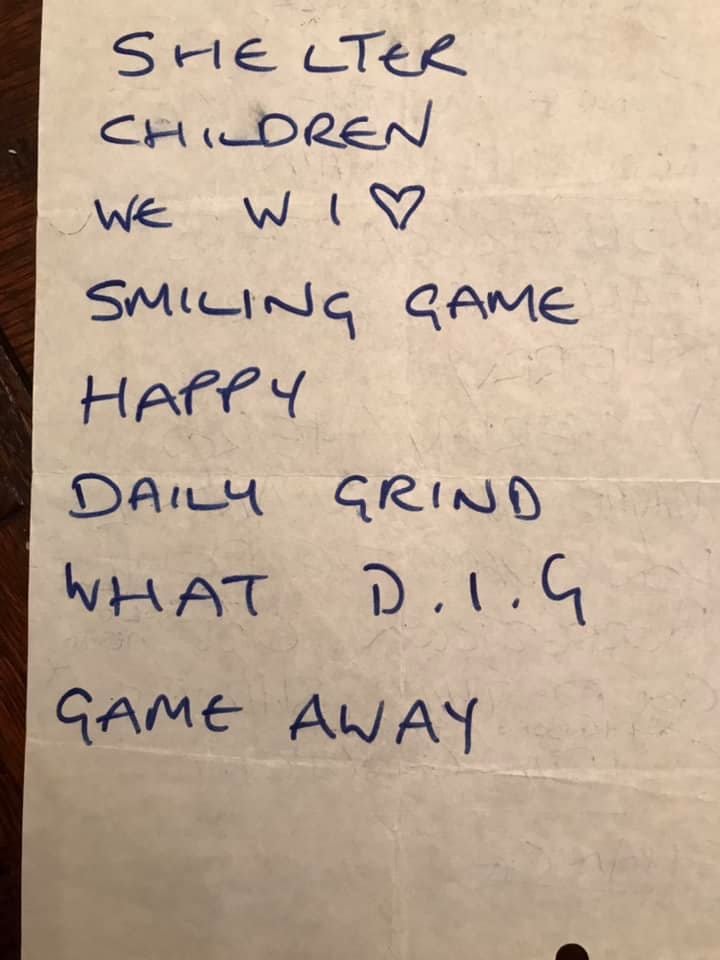 SHELTER
CHILDREN
WE WI♡
SMILING GAME
HAPPY
DAILY GRIND
WHAT D.I.G
GAME AWAY